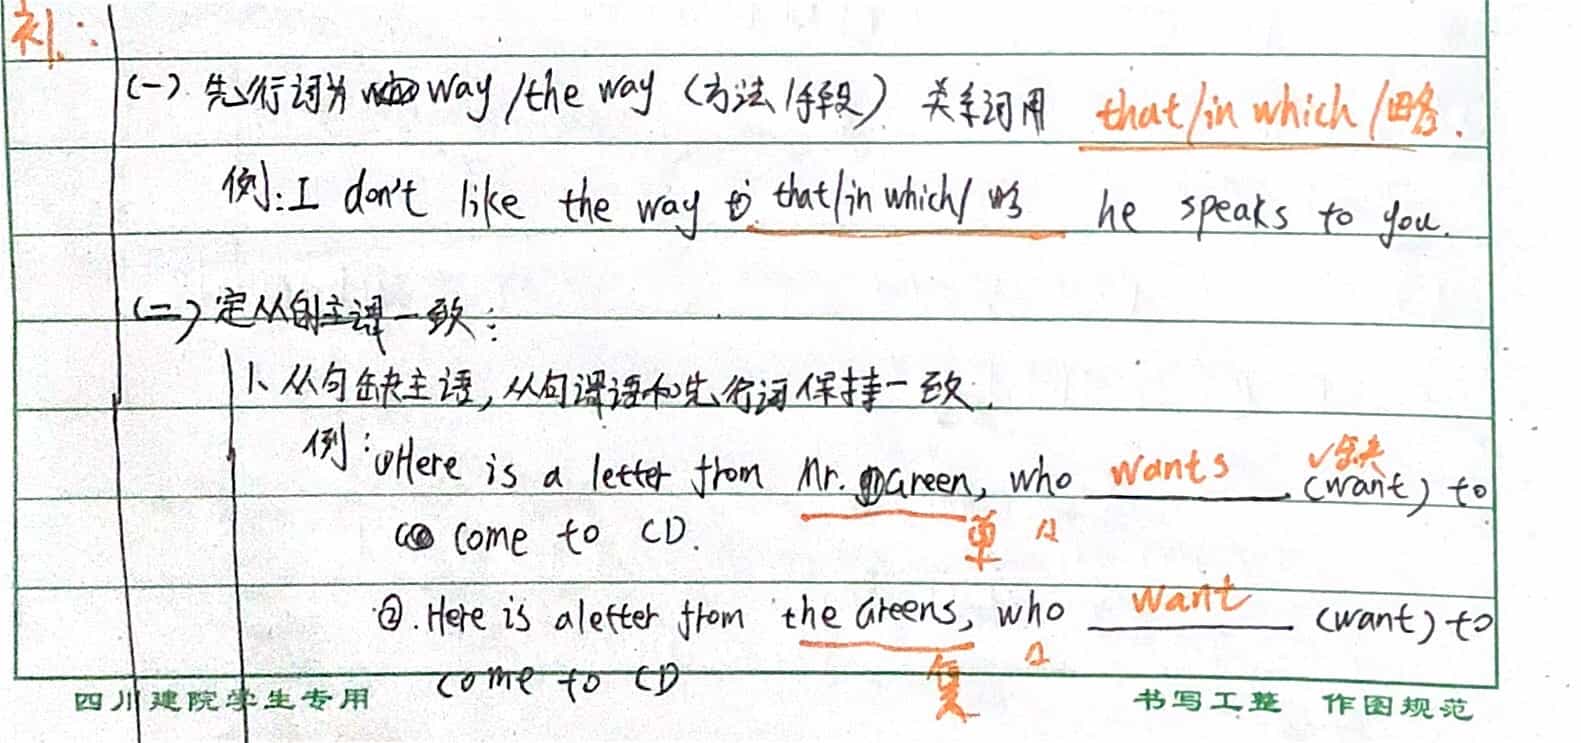 补:
(一) 先行词为 way/the way (方法/手段) 关系词用 that/in which/略.
例: I don't like the way that/in which/略 he speaks to you.
(二) 定从的主谓一致:
1、从句缺主语, 从句谓语和先行词保持一致.
例: ①Here is a letter from Mr. Green, who wants (want) to
缺
come to CD.
单
②. Here is a letter from the Greens, who want (want) to
come to CD
复
四川建院学生专用 书写工整 作图规范